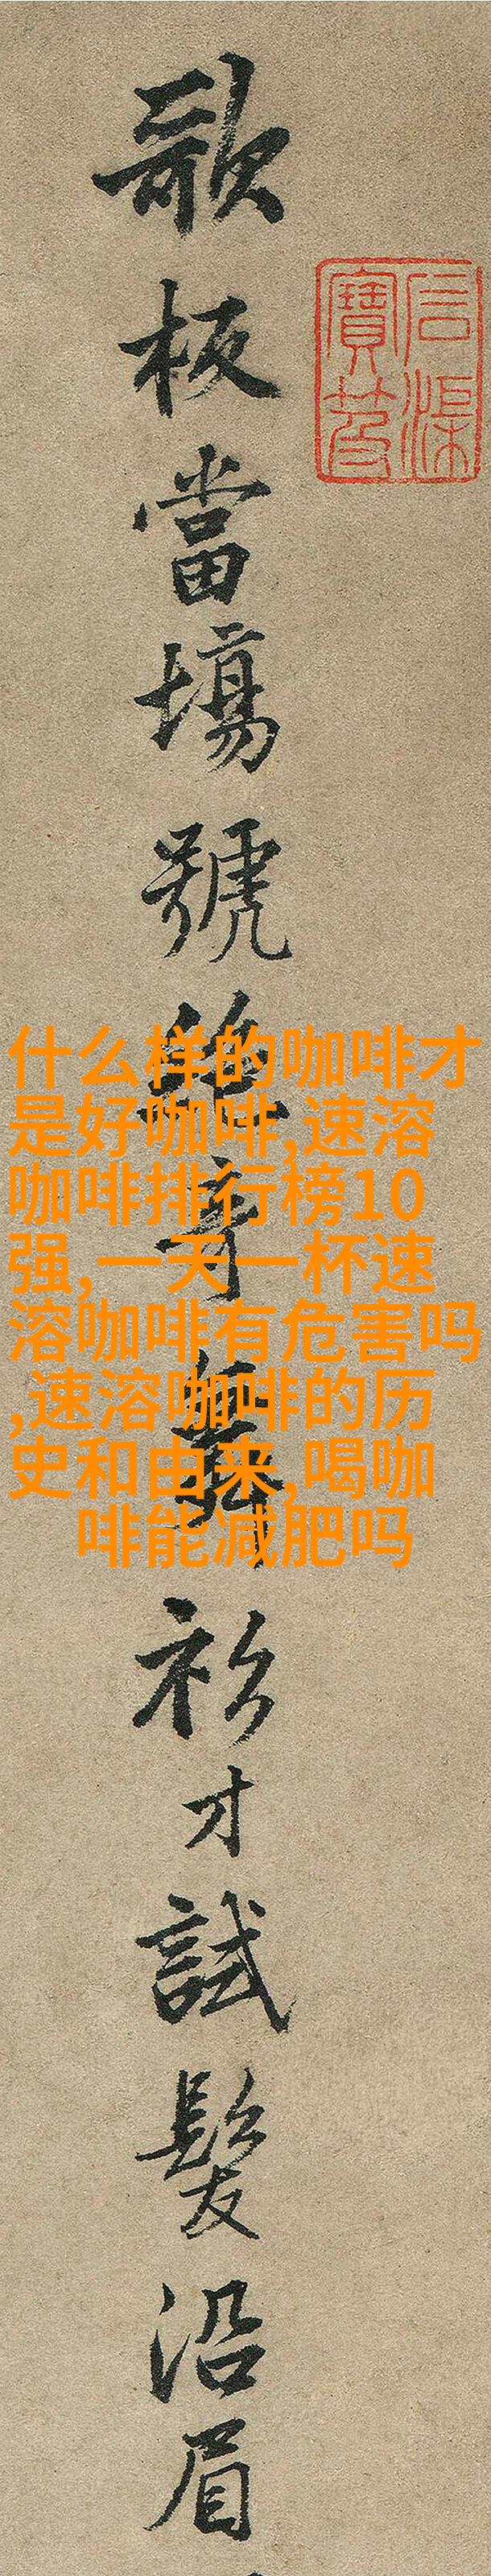 石渠
寶笈
歌板當場號絶奇舞衫才試髮沿眉
什么样的咖啡才
是好咖啡,速溶
咖啡排行榜10
强,一天一杯速
溶咖啡有危害吗
,速溶咖啡的历
史和由来,喝咖
啡能减肥吗